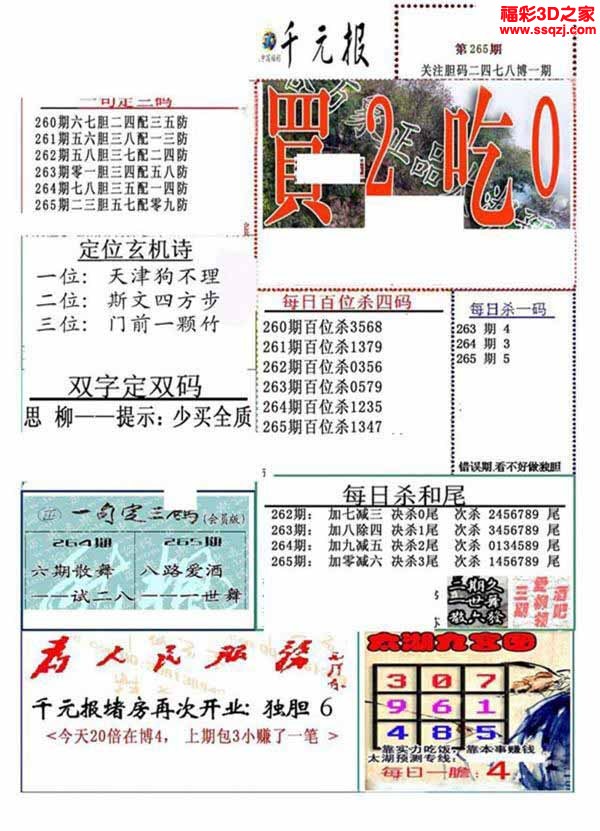 福彩3D之家
www.ssqzj.com
千元报
第265期
关注胆码二四七八博一期
一句定三码
260期六七胆二四配三五防
261期五六胆三八配一三防
262期五八胆三七配二四防
263期零一胆三四配五八防
264期七八胆三五配一四防
265期二三胆五七配零九防
買2吃0
定位玄机诗
一位: 天津狗不理
二位: 斯文四方步
三位: 门前一颗竹
双字定双码
思 柳——提示: 少买全质
每日百位杀四码
260期百位杀3568
261期百位杀1379
262期百位杀0356
263期百位杀0579
264期百位杀1235
265期百位杀1347
每日杀一码
263 期 4
264 期 3
265 期 5
错误期,看不好做独胆
一句定三码(会员版)
264期 265期
六期散舞 八路爱酒
——试二八 ——一世舞
每日杀和尾
262期: 加七减三 决杀0尾 次杀 2456789 尾
263期: 加八除四 决杀1尾 次杀 3456789 尾
264期: 加九减五 决杀2尾 次杀 0134589 尾
265期: 加零减六 决杀3尾 次杀 1456789 尾
三期久
一世舞
散六發
三期
爱柳顿
酒吧
为人民服务
千元报堵房再次开业: 独胆 6
<今天20倍在博4, 上期包3小赚了一笔 >
太湖九宫图
3 0 7
9 6 1
4 8 5
靠实力吃饭: 靠本事赚钱
太湖预测专线:
每日一膽: 4